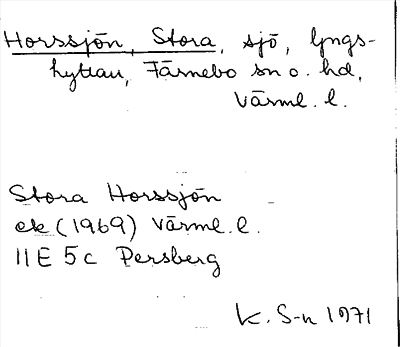 Horssjön, Stora, sjö, Ljngs-
hyttan, Färnebo sn o. hd,
Värml. l.
Stora Horssjön
ek (1969) Värml. l.
11E 5c Persberg
K. S-n 1971